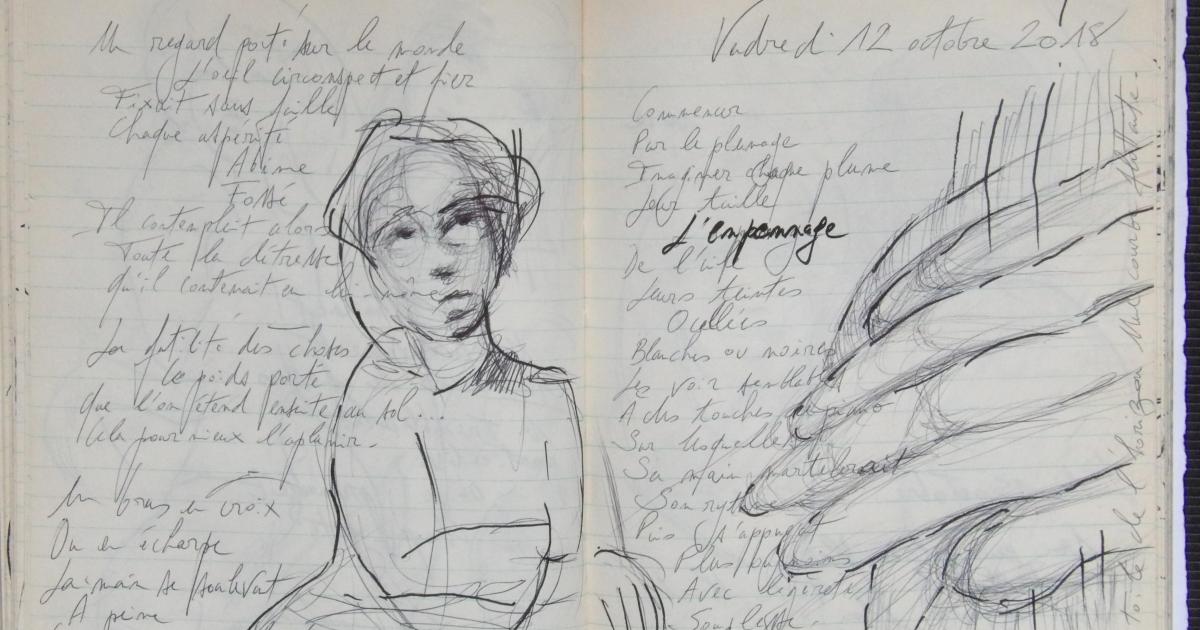 Un regard porté sur le monde
L'œil circonspect et fier
Fixait sans faille
Chaque aspérité
Abime
Fossé
Il contemplait alors
Toute la détresse
Qu'il contenait en lui-même
La futilité des choses
Le poids porté
Que l'on étend ensuite au sol...
Cela pour mieux l'aplanir.
Un bras en croix
Ou en écharpe
La main se soulevait
A peine
Vendredi 12 octobre 2018
Commencer
Par le plumage
Imaginer chaque plume
Leur taille
L'empennage
De l'aile
Leurs teintes
Ocellées
Blanches ou noires
Les voir semblables
A des touches de piano
Sur lesquelles
Sa main martèlerait
Son rythme
Puis s'appuyait
Plus ou moins
Avec légèreté
Souplesse.
toile de l'horizon